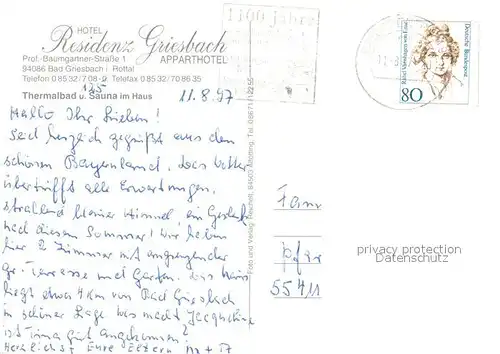 HOTEL
Residenz Griesbach
APPARTHOTEL
Prof.-Baumgartner-Straße 1
94086 Bad Griesbach i. Rottal
Telefon 0 85 32 / 7 08-0 Telefax 0 85 32 / 70 86 35
125
Thermalbad u. Sauna im Haus
11.8.97
Hallo Ihr Lieben!
Seid herzlich gegrüßt aus dem
schönen Bayernland, das Wetter
übertrifft alle Erwartungen,
strahlend blauer Himmel, ein Geschenk
nach diesem Sommer! Wir haben
hier 2 Zimmer mit angrenzender
gr. Terrasse und Garten. Das Haus
liegt etwa 4 km von Bad Griesbach
in schöner Lage. Was macht Jacqueline
ist Tima gut angekommen?
Herzlichst Eure Eltern
1100 Jahre
Deutsche Bundespost
Rahel Varnhagen von Ense
80
Foto und Verlag: 84503 Altötting, Tel. 08671/12255
Fam
pfar
55411
privacy protection
Datenschutz